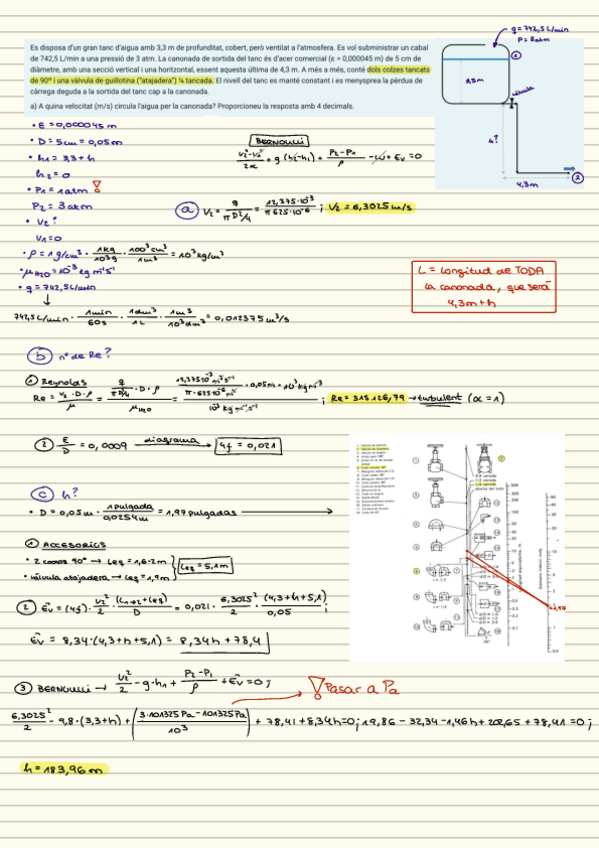 g = 742,5 L/min
P = 3 atm
Es disposa d'un gran tanc d'aigua amb 3,3 m de profunditat, cobert, però ventilat a l'atmosfera. Es vol subministrar un cabal
de 742,5 L/min a una pressió de 3 atm. La canonada de sortida del tanc és d'acer comercial (ε = 0,000045 m) de 5 cm de
diàmetre, amb una secció vertical i una horitzontal, essent aquesta última de 4,3 m. A més a més, conté dols colzes tancats
de 90º i una vàlvula de guillotina ("atajadera") ¼ tancada. El nivell del tanc es manté constant i es menysprea la pèrdua de
càrrega deguda a la sortida del tanc cap a la canonada.
a) A quina velocitat (m/s) circula l'aigua per la canonada? Proporcioneu la resposta amb 4 decimals.
h?
4,3m
②
• E = 0,000045 m
• D = 5cm = 0,05m
• h1 = 3,3 + h
h2 = 0
• P1 = 1 atm
P2 = 3 atm
• V2 ?
V1 = 0
BERNOULLI
(V2²-V1²)/2α + g (h2-h1) + (P2-P1)/ρ - ω + Ev = 0
a V2 = g/(πD²/4) = 12,375·10⁻³/(π 625·10⁻⁶) ; V2 = 6,3025 m/s
• ρ = 1 g/cm³ · 1kg/10³g · 100³cm³/1m³ = 10³ kg/m³
• μH2O = 10⁻³ kg m⁻¹s⁻¹
• g = 742,5 L/min
742,5 L/min · 1min/60s · 1dm³/1L · 1m³/10³dm³ = 0,012375 m³/s
L = longitud de TODA
la canonada, que serà
4,3m + h
b nº de Re?
① Reynolds
Re = V2·D·ρ/μ = (g/(πD²/4) · D·ρ)/μH2O = (12,375·10⁻³ m³s⁻¹/(π·625·10⁻⁶ m²) · 0,05m · 10³ kg/m³)/(10⁻³ kg m⁻¹s⁻¹) ; Re = 315126,79 → turbulent (α = 1)
② E/D = 0,0009 diagrama → 4f = 0,021
c h?
• D = 0,05m · 1 pulgada/0,0254m = 1,97 pulgadas
① ACCESORIOS
• 2 codos 90º → Leq = 1,6·2 m
• válvula atajadera → Leq = 1,9m
Leq = 5,1m
② Êv = (4f) · V2²/2 · (Ln+2+Leq)/D = 0,021 · 6,3025²/2 · (4,3+h+5,1)/0,05 ;
Êv = 8,34·(4,3+h+5,1) = 8,34h + 78,4
1,97
③ BERNOULLI → V2²/2 - g·h1 + (P2-P1)/ρ + Êv = 0 ;
Pasar a Pa
6,3025²/2 - 9,8·(3,3+h) + (3·101325 Pa - 101325 Pa)/10³ + 78,41 + 8,34h = 0 ; 19,86 - 32,34 - 1,46h + 202,65 + 78,41 = 0 ;
h = 183,96 m